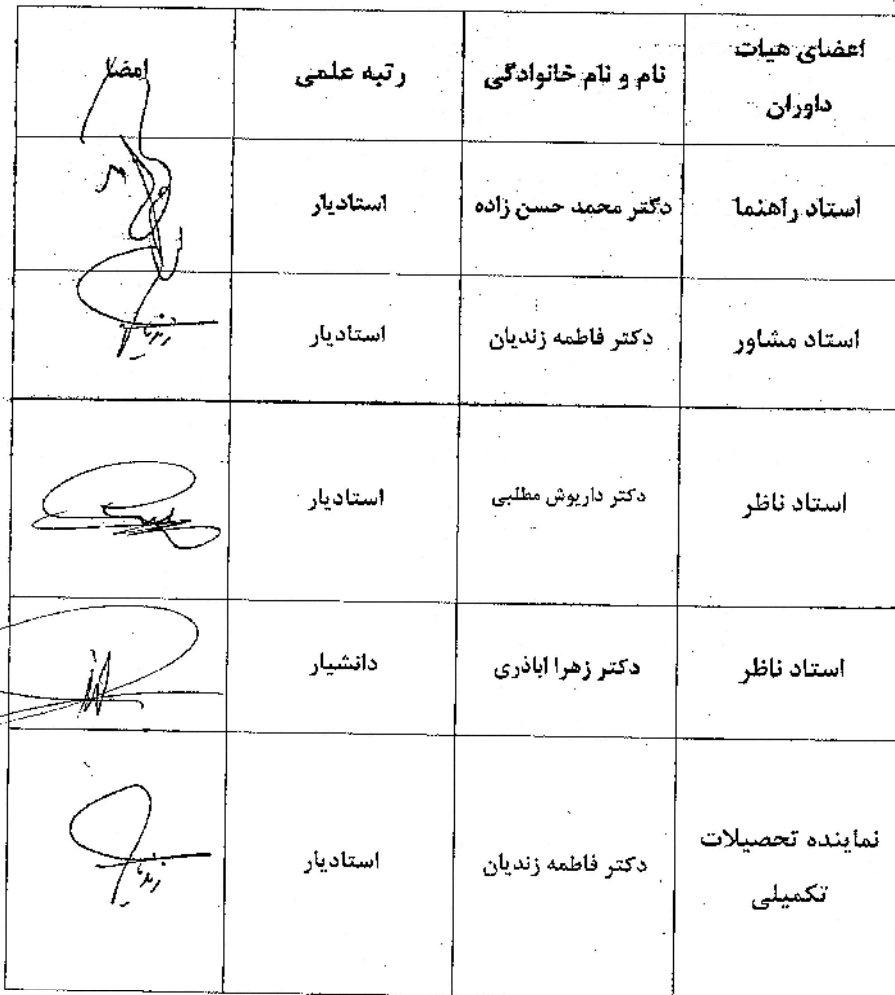 اعضای هیات داوران	نام و نام خانوادگی	رتبه علمی	امضا
استاد راهنما	دکتر محمد حسن زاده	استادیار
استاد مشاور	دکتر فاطمه زندیان	استادیار
استاد ناظر	دکتر داریوش مطلبی	استادیار
استاد ناظر	دکتر زهرا اباذری	دانشیار
نماینده تحصیلات تکمیلی	دکتر فاطمه زندیان	استادیار